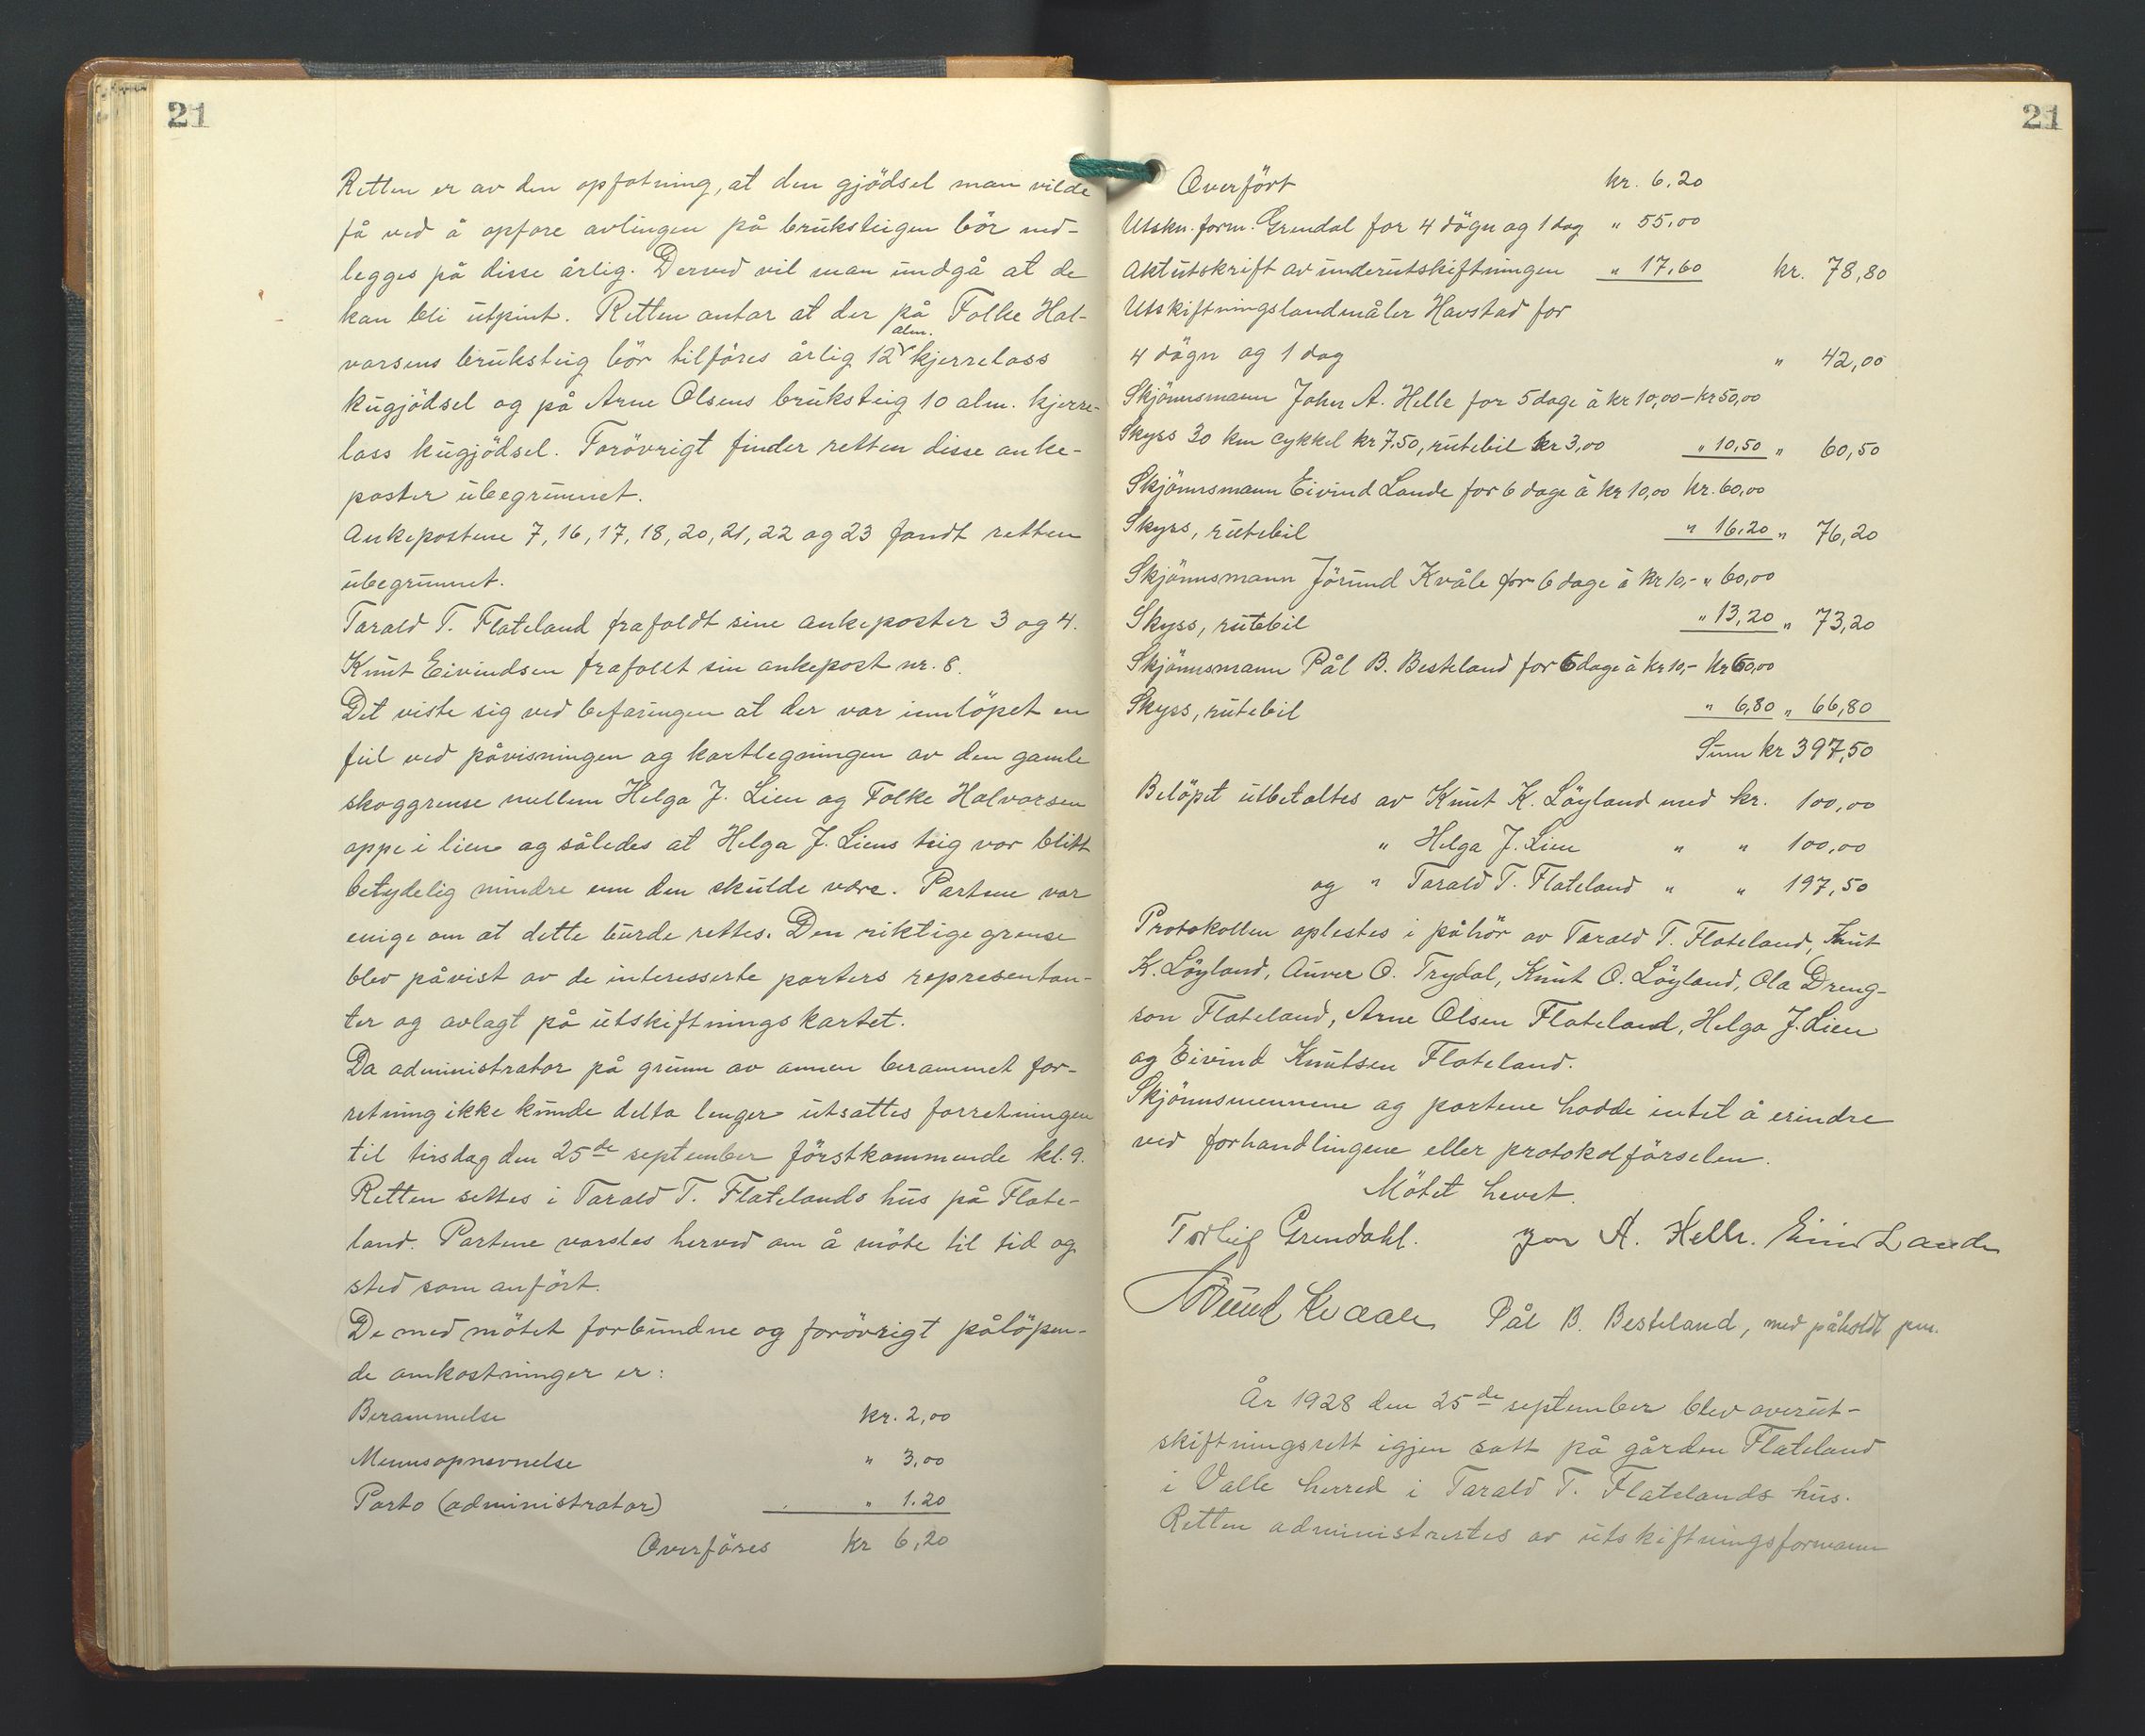 21
Retten er av den opfatning, at den gjödsel man vilde
få ved å opfore avlingen på bruksteigen bör ned-
legges på disse årlig. Derved vil man undgå at de
kan bli utpint. Retten antar at der på Folke Hal-
varsens bruksteig bör tilföres årlig 12 alm. kjerrelass
kugjödsel og på Arne Olsens bruksteig 10 alm. kjerre-
lass kugjödsel. Forövrigt finder retten disse anke-
poster ubegrunnet.
Ankepostene 7, 16, 17, 18, 20, 21, 22 og 23 fandt retten
ubegrunnet.
Tarald T. Flateland frafaldt sine ankeposter 3 og 4.
Knut Eivindsen frafallt sin ankepost nr. 8.
Det viste sig ved befaringen at der var innlöpet en
feil ved påvisningen og kartlegningen av den gamle
skoggrense mellem Helga J. Lien og Folke Halvorsen
oppe i liene og således at Helga J. Liens teig var blitt
betydelig mindre enn den skulde være. Partene var
enige om at dette burde rettes. Den riktige grense
blev påvist av de interesserte parters representan-
ter og avlagt på utskiftningskartet.
Da administrator på grunn av annen berammet for-
retning ikke kunde delta lenger utsattes forretningen
til tirsdag den 25de september förstkommende kl. 9.
Retten settes i Tarald T. Flatelands hus på Flate-
land. Partene varsles herved om å möte til tid og
sted som anfört.
De med mötet forbundne og forövrigt pålöpen-
de omkostninger er:
Berammelse kr. 2,00
Mennsopnevnelse " 3,00
Porto (administrator) " 1.20
Overföres kr 6,20
21
Overfört kr. 6,20
Utskn. form. Grendal for 4 dögn og 1 dag " 55,00
Aktutskrift av underutskiftningen " 17,60 kr. 78,80
Utskiftningslandmåler Havstad for
4 dögn og 1 dag " 42,00
Skjönnsmann John A. Helle for 5 dage à kr 10,00 - kr 50,00
Skyss 30 km cykkel kr 7,50, rutebil kr 3,00 " 10,50 " 60,50
Skjönnsmann Eivind Lande for 6 dage à kr 10,00 kr. 60,00
Skyss, rutebil " 16,20 " 76,20
Skjönnsmann Jörund Kvåle for 6 dage à kr 10,- " 60,00
Skyss, rutebil " 13,20 " 73,20
Skjönnsmann Pål B. Besteland for 6 dage à kr 10,- kr 60,00
Skyss, rutebil " 6,80 " 66,80
Sum kr 397,50
Belöpet utbetaltes av Knut K. Löyland med kr. 100,00
" Helga J. Lien " " 100,00
og " Tarald T. Flateland " " 197,50
Protokollen oplestes i påhör av Tarald T. Flateland, Knut
K. Löyland, Auver O. Trydal, Knut O. Löyland, Ola Dreng-
son Flateland, Arne Olsen Flateland, Helga J. Lien
og Eivind Knutsen Flateland.
Skjönnsmennene og partene hadde intet å erindre
ved forhandlingene eller protokolförselen.
Mötet hevet.
Torleif Grendahl. Jon A. Helle. Eivind Lande
Jörund Kvaale Pål B. Besteland, med påholdt pen.
År 1928 den 25de september blev overut-
skiftningsrett igjen satt på gården Flateland
i Valle herred i Tarald T. Flatelands hus.
Retten administrertes av utskiftningsformann